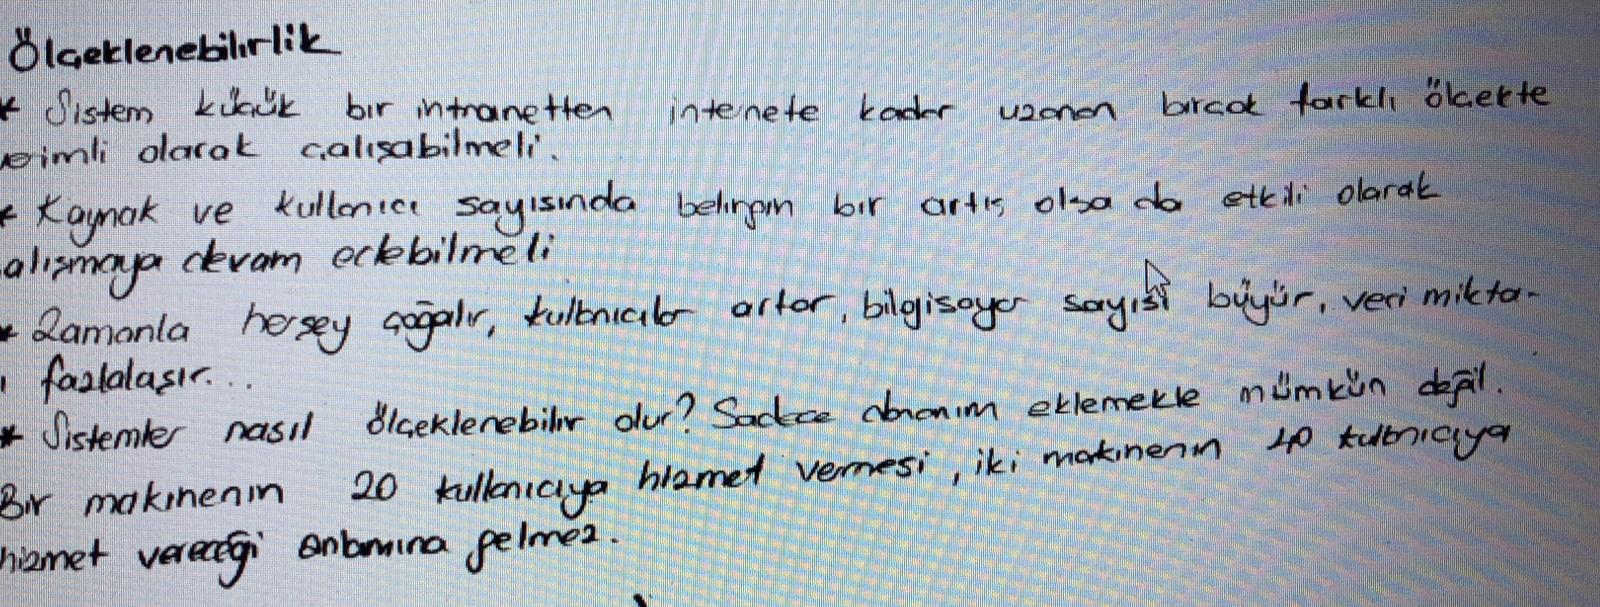 Ölçeklenebilirlik
* Sistem küçük bir intranetten internete kadar uzanan birçok farklı ölçekte
erimli olarak çalışabilmeli.
* Kaynak ve kullanıcı sayısında belirgin bir artış olsa da etkili olarak
alışmaya devam edebilmeli
* Zamanla herşey çoğalır, kullanıcılar artar, bilgisayar sayısı büyür, veri mikta-
ı fazlalaşır...
* Sistemler nasıl ölçeklenebilir olur? Sadece donanım eklemekle mümkün değil.
Bir makinenin 20 kullanıcıya hizmet vermesi, iki makinenin 40 kullanıcıya
hizmet vereceği anlamına gelmez.